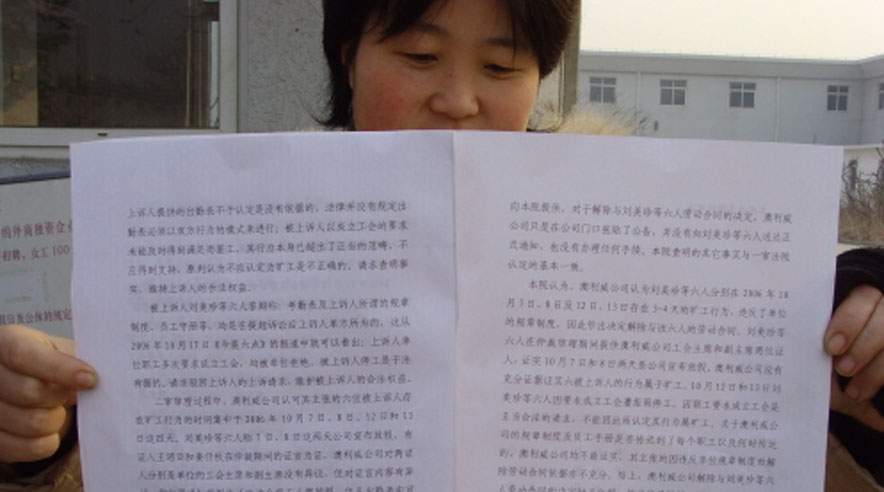 上诉人提供的台勤表不予认定是没有依据的，法律并没有规定出
勤表必须以双方行为的模式来进行；被上诉人以成立工会的要求
未能及时得到满足而罢工，其行为本身已超出了正当的范畴，不
应得到支持。原判认为不应认定为旷工是不正确的，请求查明事
实，维持上诉人的合法权益。
被上诉人刘美珍等六人答辩称：考勤表及上诉人所谓的规章
制度、员工守册等，均是在提起诉讼后上诉人单方所为的，这从
2006年10月17日《今晨六点》的报道中就可以看出；上诉人单
位职工多次要求成立工会，均被单位拒绝，被上诉人停工是于法
有据的，请求驳回上诉人的上诉请求，维护被上诉人的合法权益。
二审审理过程中，澳利威公司认可其主张的六位被上诉人存
在旷工行为的时间集中于2006年10月7日、8日、12日和13
日这四天。刘美珍等六人称7日、8日这两天公司宣布放假，有
证人王明日和姜仕权在仲裁期间的证言为证。澳利威公司对两证
人分别是单位的工会主席和副主席没有异议，但对证言内容有异
向本院提供。对于解除与刘美珍等六人劳动合同的决定，澳利威
公司只是在公司门口张贴了公告，并没有向刘美珍等六人送达正
式通知，也没有办理任何手续。本院查明的其它事实与一审法院
认定的基本一致。
本院认为，澳利威公司认为刘美珍等六人分别在2006年10
月7日、8日及12日、13日存在3-4天的旷工行为，违反了单位
的规章制度，因此作出决定解除与该六人的劳动合同。刘美珍等
六人在仲裁审理期间提供澳利威公司工会主席和副主席两位证
人，证实10月7日和8日两天是公司宣布放假，澳利威公司没有
充分证据证实六被上诉人的行为属于旷工。10月12日和13日刘
美珍等六人因要求成立工会遭拒而停工，因职工要求成立工会是
正当合法的请求，不能因此而认定其行为属旷工。关于澳利威公
司的规章制度及员工手册是否传达到了每个职工以及何时传达
的，澳利威公司均不能证实，其主张的因违反单位规章制度而解
除劳动合同依据亦不充分。综上，澳利威公司解除与刘美珍等六
商外商独资企业
招聘，女工100